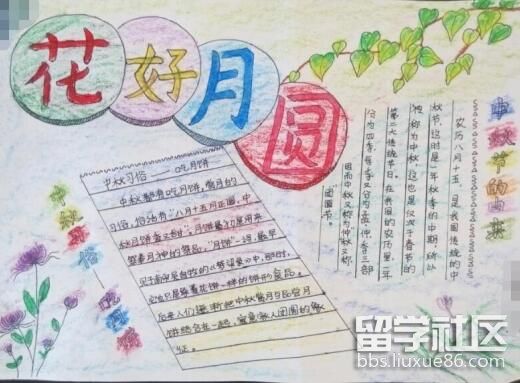 花好月圆
中秋节的由来
农历八月十五，是我国传统的中
秋节，这时是一年秋季的中期，所以
被称为中秋，这也是仅次于春节的
第二大传统节日。在我国的农历里，一年
分为四季，每季又分为孟、仲、季三部
因而中秋又称为"仲秋"，又称
团圆节。
中秋习俗——吃月饼
中秋都有吃月饼，赏月的
习俗，俗话有"八月十五月正圆，中
秋月饼香又甜"。月饼最初是用来
祭奉月神的祭品，"月饼"一词，最早
见于南宋吴自牧的《梦粱录》中，那时，
它也只是像菱花饼一样的饼形食品。
后来人们逐渐把中秋赏月与品尝月
饼结合在一起，寓意家人团圆的象
征。
中秋习俗——吃月饼
留学社区
bbs.liuxue86.com